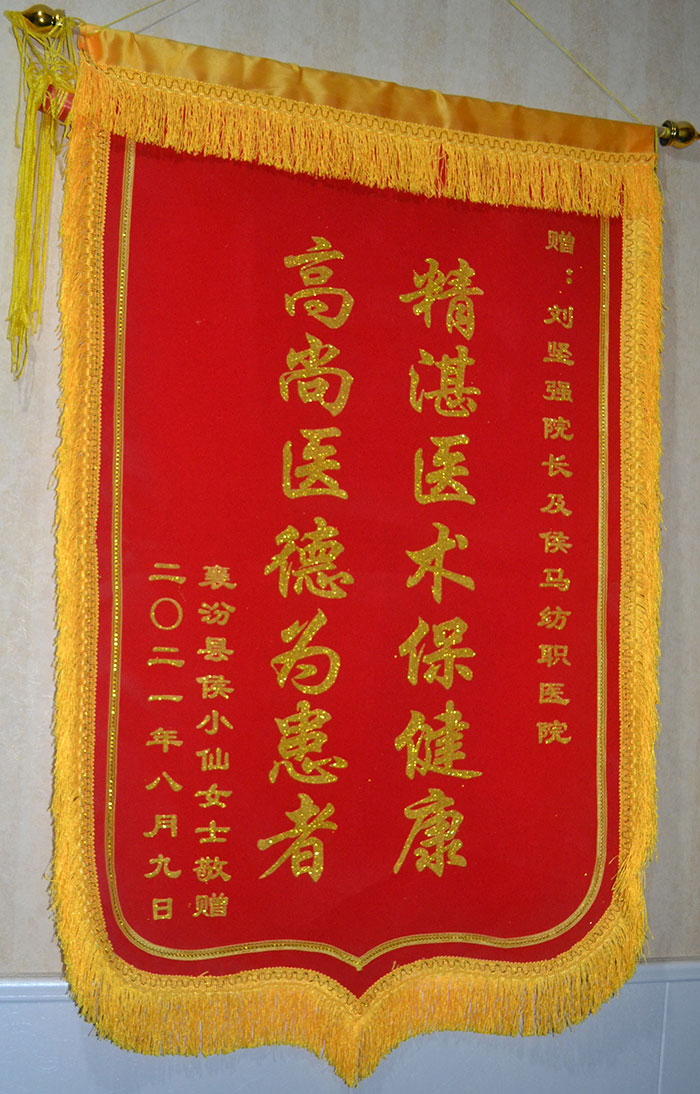 赠：刘坚强院长及侯马纺职医院
精湛医术保健康
高尚医德为患者
襄汾县侯小仙女士敬赠
二〇二一年八月九日